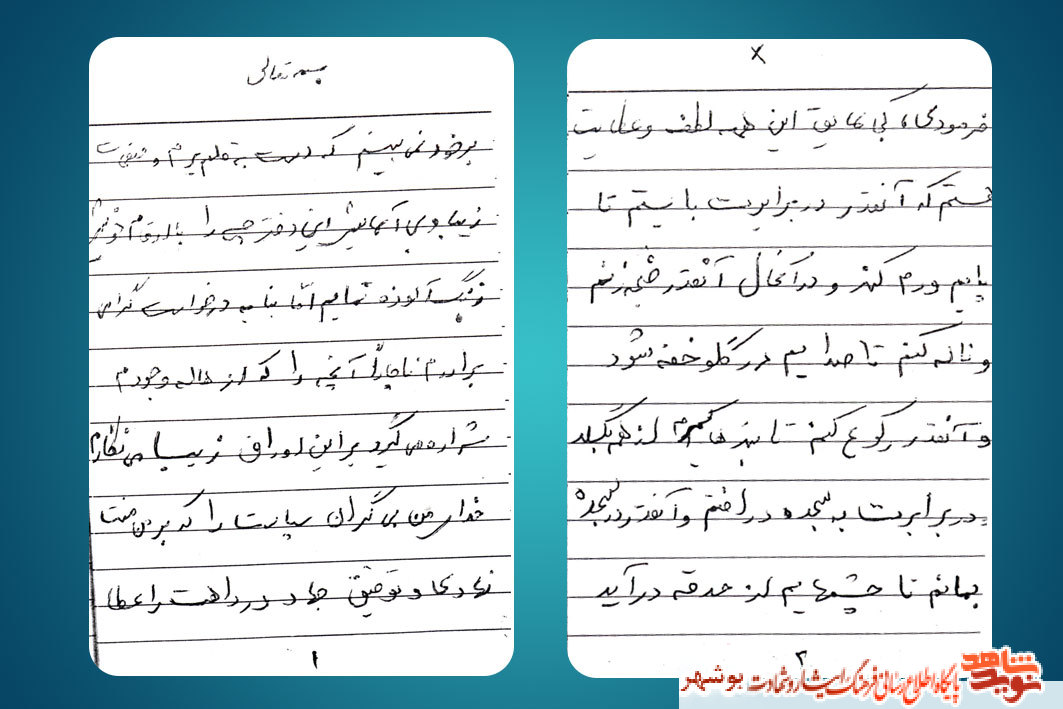 بسمه تعالی
بر خود نمی بینم که دست به قلم برم و صفحات
زیبا و بی آلایش این دفترچه را با
رنگ آلوده نمایم امّا بنا به درخواست گرامی
برادرم ناچاراً آنچه را که از وجودم
شراره می گیرد بر این اوراق زیبا می نگارم
خدای من بی گران سپاست را که بر من منت
نهادی و توفیق جهاد در راهت را عطا
۱
فرمودی، کی لایق این همه لطف و عنایت
هستم که آنقدر در برابرت بایستم تا
پایم ورم کند و در آنحال آنقدر ضجه زنم
و ناله کنم تا صدایم در گلو خفه شود
و آنقدر رکوع کنم تا از هم بگسلد
در برابرت به سجده در افتم و آنقدر در سجده
بمانم تا چشمهایم از حدقه درآید
۲
نوید شاهد
پایگاه اطلاع رسانی فرهنگ ایثار و شهادت بوشهر